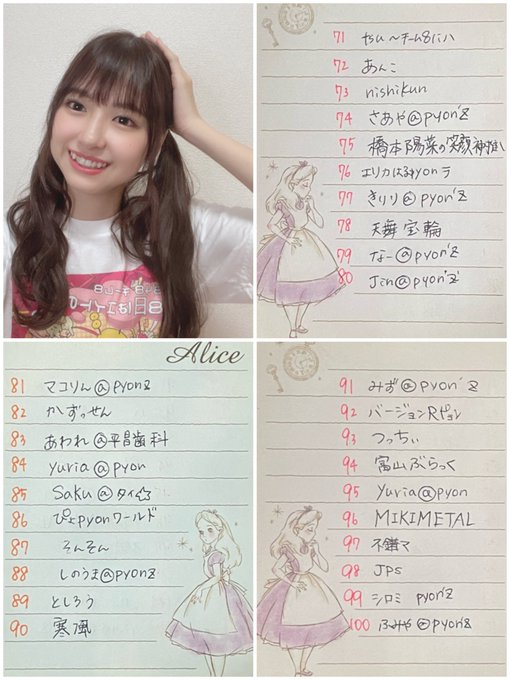 71 やちぃ〜チーム8にハ
72 あんこ
73 nishikun
74 さあや@pyon'z
75 橋本陽菜の笑顔神推し
76 エリカはるpyonラ
77 きりり@pyon'z
78 天舞宝輪
79 なー@pyon'z
80 Jin@pyon'z
Alice
81 マコりん@pyonz
82 かずっせん
83 あわれ@平昌歯科
84 yuria@pyon
85 Saku@タイ
86 ぴょpyonワールド
87 そんそん
88 しのうま@pyonz
89 としろう
90 寒風
91 みず@pyon'z
92 バージョンRピョン
93 つっちぃ
94 富山ぶらっく
95 Yuria@pyon
96 MIKIMETAL
97 不鎌マ
98 JPS
99 シロミ pyon'z
100 ふみや@pyon'z